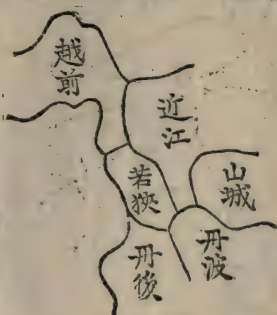 越前
近江
若狹
山城
丹後
丹波